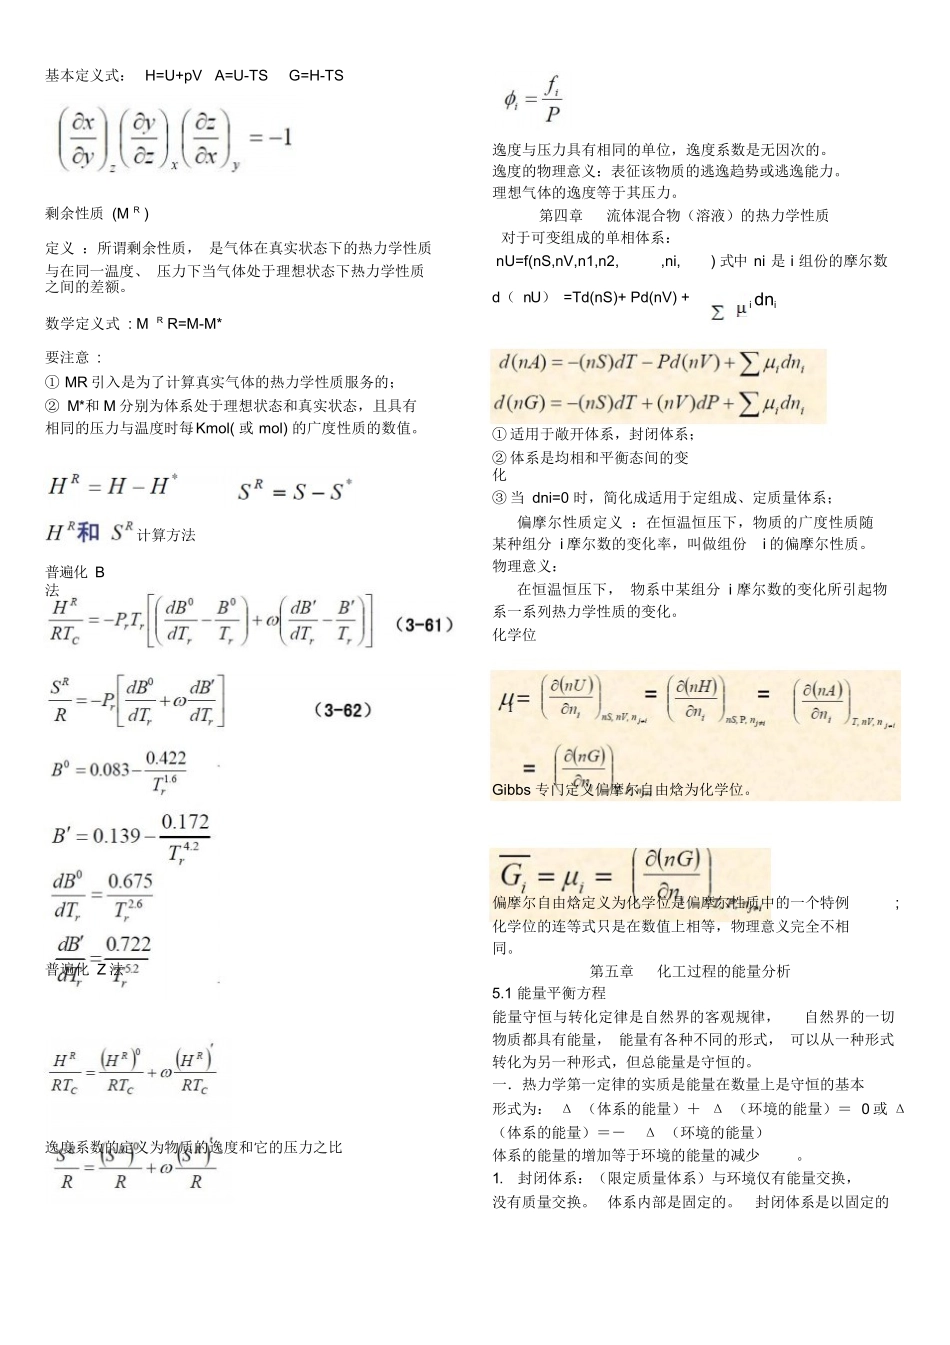 基本定义式： H=U+pV A=U-TS G=H-TS
(∂x/∂y)_z (∂y/∂z)_x (∂z/∂x)_y = -1
剩余性质 (M R )
定义 ：所谓剩余性质， 是气体在真实状态下的热力学性质
与在同一温度、 压力下当气体处于理想状态下热力学性质
之间的差额。
数学定义式 : M R R=M-M*
要注意 :
① MR 引入是为了计算真实气体的热力学性质服务的；
② M*和 M 分别为体系处于理想状态和真实状态，且具有
相同的压力与温度时每 Kmol( 或 mol) 的广度性质的数值。
H^R = H − H^* S^R = S − S^*
H^R 和 S^R 计算方法
普遍化 B
法
H^R/RT_C = −P_r T_r [(dB^0/dT_r − B^0/T_r) + ω(dB′/dT_r − B′/T_r)] （3-61）
S^R/R = −P_r [dB^0/dT_r + ω dB′/dT_r] （3-62）
B^0 = 0.083 − 0.422/T_r^1.6
B′ = 0.139 − 0.172/T_r^4.2
dB^0/dT_r = 0.675/T_r^2.6
dB′/dT_r = 0.722/T_r^5.2
普遍化 Z 法
H^R/RT_C = (H^R)^0/RT_C + ω (H^R)′/RT_C
逸度系数的定义为物质的逸度和它的压力之比
S^R/R = (S^R)^0/R + ω (S^R)′/R
ϕ_i = f_i/P
逸度与压力具有相同的单位，逸度系数是无因次的。
逸度的物理意义：表征该物质的逃逸趋势或逃逸能力。
理想气体的逸度等于其压力。
第四章 流体混合物（溶液）的热力学性质
对于可变组成的单相体系：
nU=f(nS,nV,n1,n2, ,ni, ) 式中 ni 是 i 组份的摩尔数
d（ nU） =Td(nS)+ Pd(nV) + ∑ μ i dni
d(nA) = −(nS)dT − Pd(nV) + ∑ μ_i dn_i
d(nG) = −(nS)dT + (nV)dP + ∑ μ_i dn_i
① 适用于敞开体系，封闭体系；
② 体系是均相和平衡态间的变
化
③ 当 dni=0 时，简化成适用于定组成、定质量体系；
偏摩尔性质定义 ：在恒温恒压下，物质的广度性质随
某种组分 i 摩尔数的变化率，叫做组份 i 的偏摩尔性质。
物理意义：
在恒温恒压下， 物系中某组分 i 摩尔数的变化所引起物
系一系列热力学性质的变化。
化学位
μ_i = (∂(nU)/∂n_i)_{nS, nV, n_j≠i} = (∂(nH)/∂n_i)_{nS, P, n_j≠i} = (∂(nA)/∂n_i)_{T, nV, n_j≠i}
= (∂(nG)/∂n_i)
Gibbs 专门定义偏摩尔自由焓为化学位。
G̅_i = μ_i = (∂(nG)/∂n_i)
偏摩尔自由焓定义为化学位是偏摩尔性质中的一个特例 ；
化学位的连等式只是在数值上相等，物理意义完全不相
同。
第五章 化工过程的能量分析
5.1 能量平衡方程
能量守恒与转化定律是自然界的客观规律， 自然界的一切
物质都具有能量， 能量有各种不同的形式， 可以从一种形式
转化为另一种形式，但总能量是守恒的。
一．热力学第一定律的实质是能量在数量上是守恒的基本
形式为： Δ （体系的能量）＋ Δ （环境的能量）＝ 0 或 Δ
（体系的能量）＝－ Δ （环境的能量）
体系的能量的增加等于环境的能量的减少 。
1. 封闭体系：（限定质量体系）与环境仅有能量交换，
没有质量交换。 体系内部是固定的。 封闭体系是以固定的